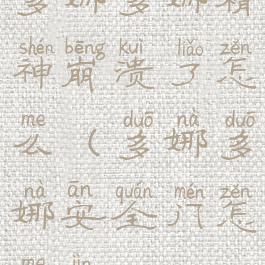 多娜多娜精
shén bēng kuì liǎo zěn
神崩溃了怎
me duō nà duō
么(多娜多
nà ān quán mén zěn
娜安全门怎
me jìn